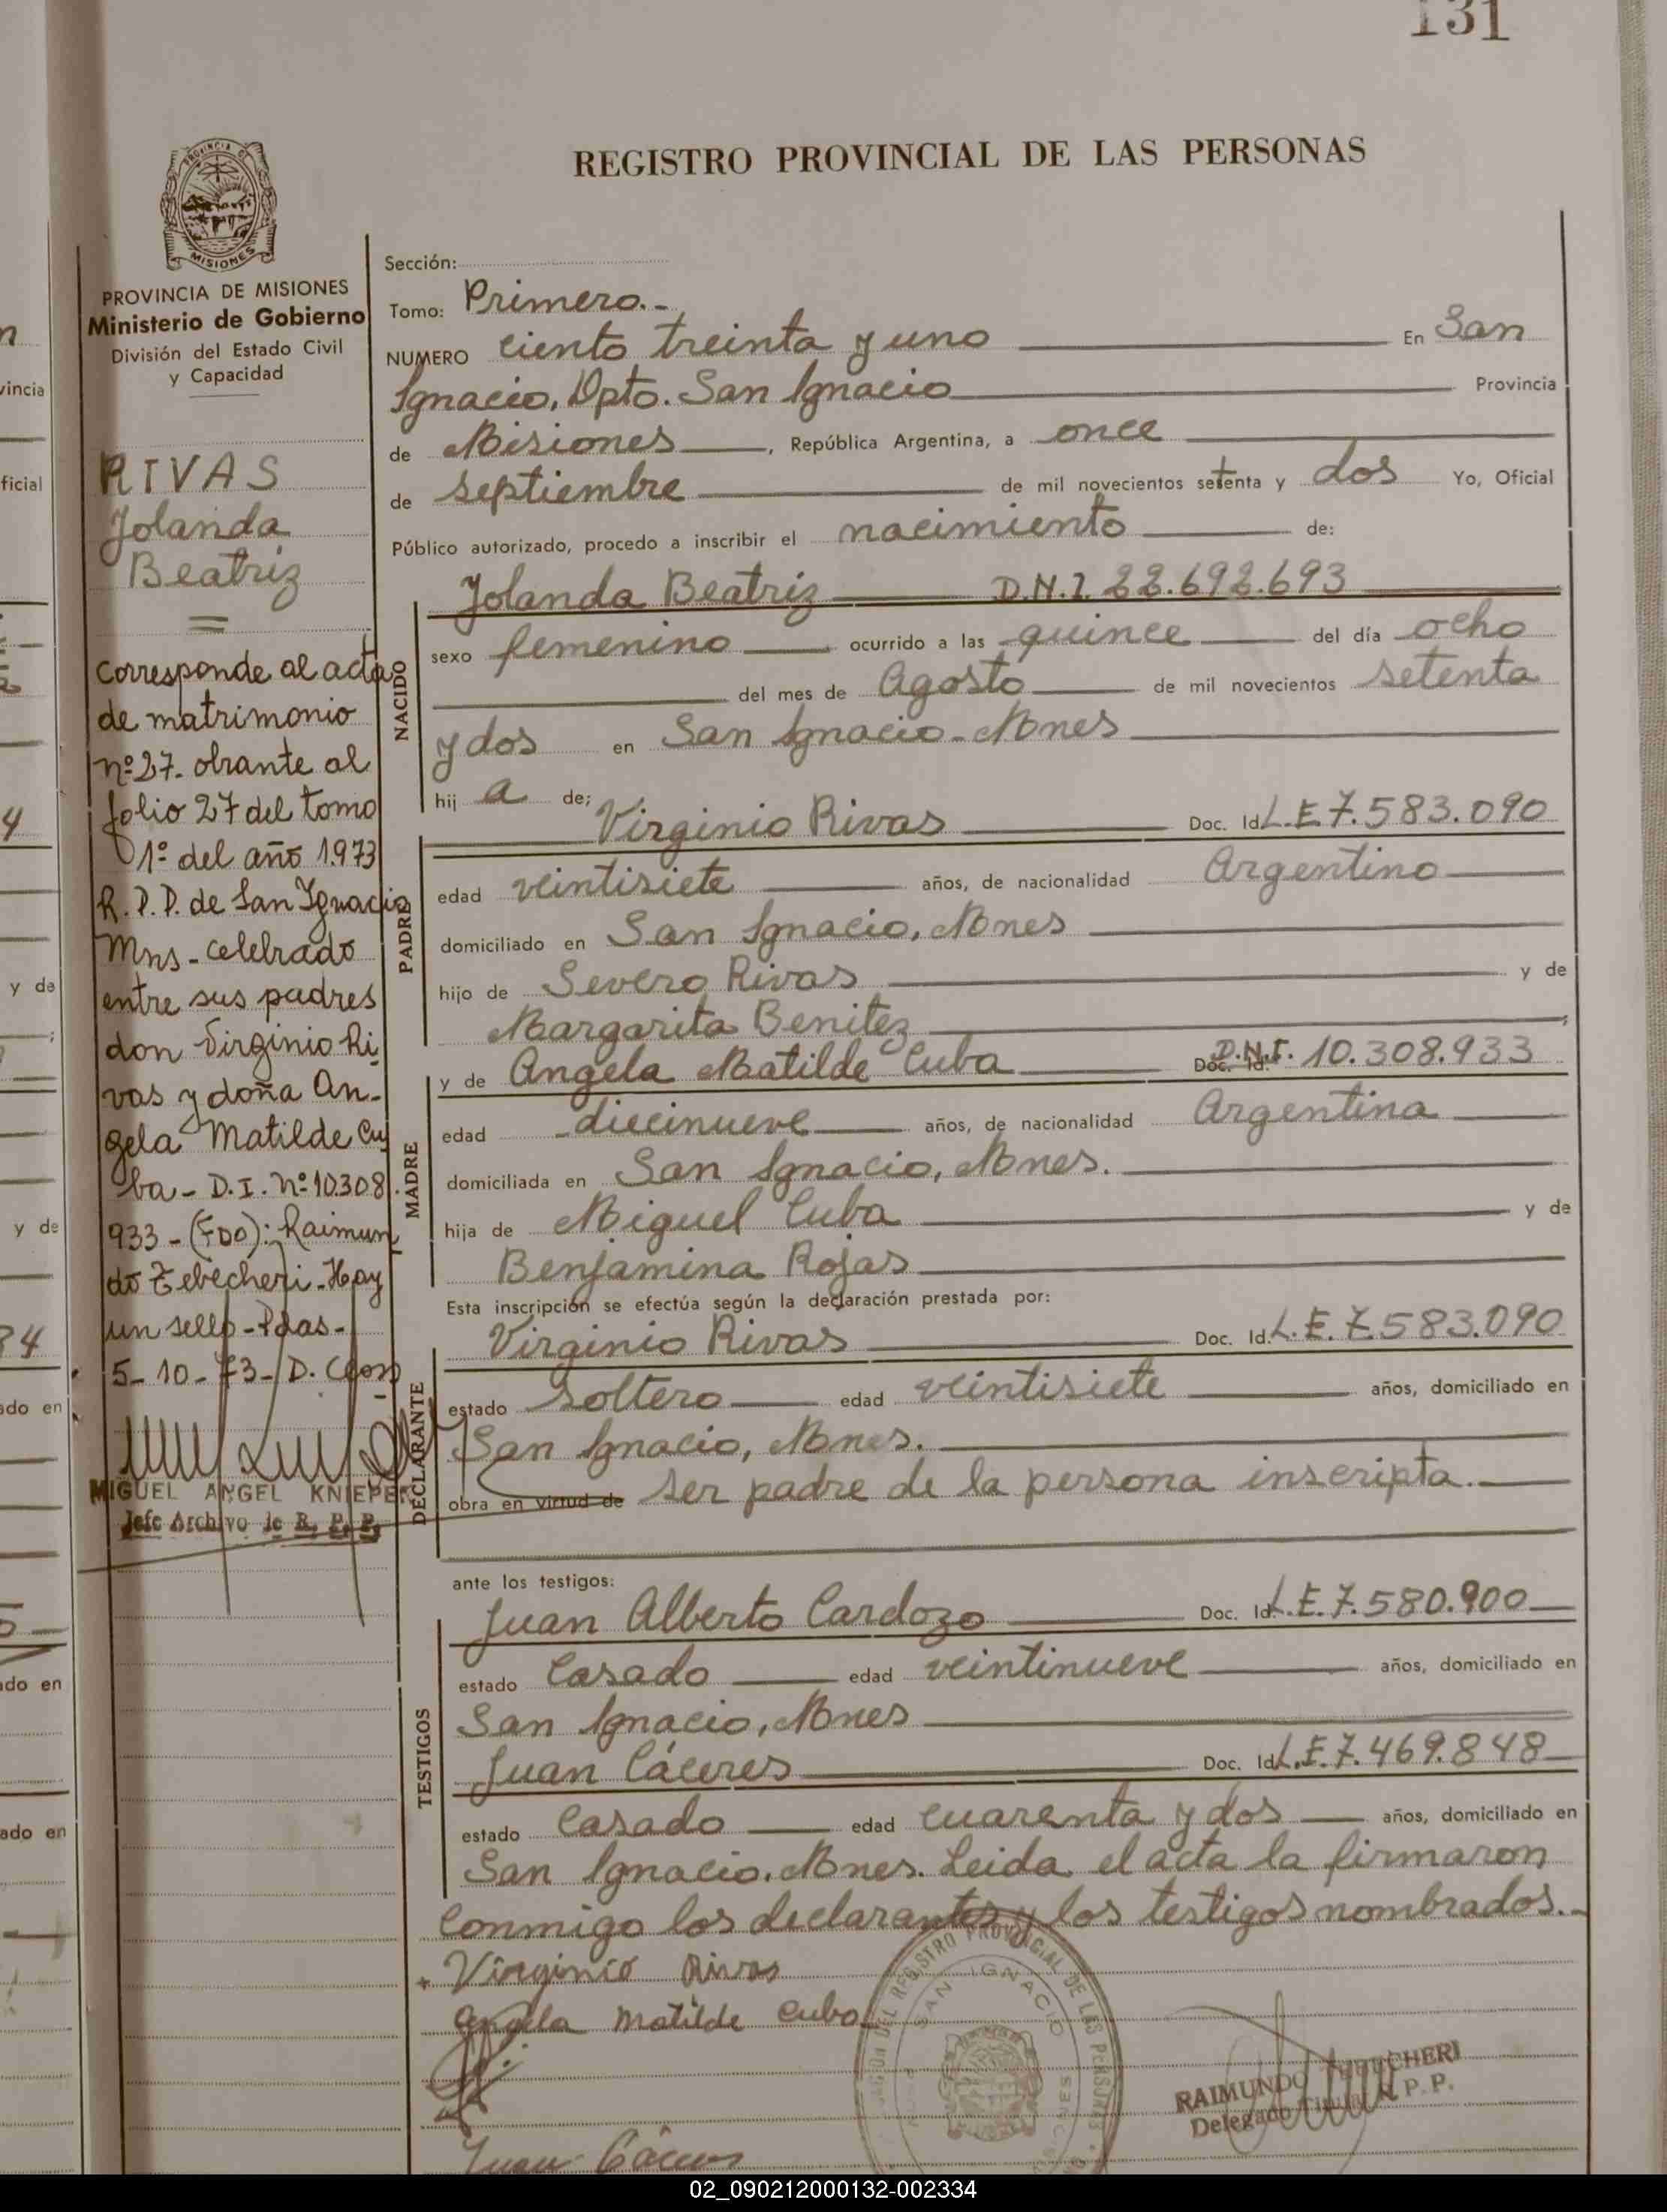 131
REGISTRO PROVINCIAL DE LAS PERSONAS
PROVINCIA DE
MISIONES
PROVINCIA DE MISIONES
Ministerio de Gobierno
División del Estado Civil
y Capacidad
RIVAS
Yolanda
Beatriz
=
Corresponde al acta
de matrimonio
nº 27. obrante al
folio 27 del tomo
1º del año 1973
R.P.P. de San Ignacio
Mns - celebrado
entre sus padres
don Virginio Ri-
vas y doña An-
gela Matilde Cu
ba - D.I. Nº 10.308.
933 - (FDO): Raimun
do Tebecheri - Hay
un sello - Pdas -
5 - 10 - 73 - D.
MIGUEL ANGEL KNIEPER
Jefe Archivo de R. P. P.
Sección:
Tomo: Primero.-
NUMERO ciento treinta y uno En San
Ignacio, Dpto. San Ignacio Provincia
de Misiones, República Argentina, a once
de septiembre de mil novecientos setenta y dos Yo, Oficial
Público autorizado, procedo a inscribir el nacimiento de:
Yolanda Beatriz D.N.I. 22.692.693
NACIDO
sexo femenino ocurrido a las quince del día ocho
del mes de Agosto de mil novecientos setenta
y dos en San Ignacio - Mnes
hij a de;
Virginio Rivas Doc. Id. L.E 7.583.090
PADRE
edad veintisiete años, de nacionalidad Argentino
domiciliado en San Ignacio, Mnes
hijo de Severo Rivas y de
Margarita Benitez ;
y de Angela Matilde Cuba Doc. Id. D.N.I. 10.308.933
MADRE
edad diecinueve años, de nacionalidad Argentina
domiciliada en San Ignacio, Mnes.
hija de Miguel Cuba y de
Benjamina Rojas
Esta inscripción se efectúa según la declaración prestada por:
Virginio Rivas Doc. Id. L.E. 7.583.090
DECLARANTE
estado soltero edad veintisiete años, domiciliado en
San Ignacio, Mnes.
obra en virtud de ser padre de la persona inscripta.
ante los testigos:
Juan Alberto Cardozo Doc. Id. L.E. 7.580.900
TESTIGOS
estado Casado edad veintinueve años, domiciliado en
San Ignacio, Mnes
Juan Cáceres Doc. Id. L.E. 7.469.848
estado Casado edad cuarenta y dos años, domiciliado en
San Ignacio. Mnes. Leida el acta la firmaron
conmigo los declarantes y los testigos nombrados.-
Virginio Rivas
Angela Matilde Cuba
DEL REGISTRO PROVINCIAL DE LAS PERSONAS
SAN IGNACIO
RAIMUNDO
Delegado Titular R. P. P.
Juan
02_090212000132-002334